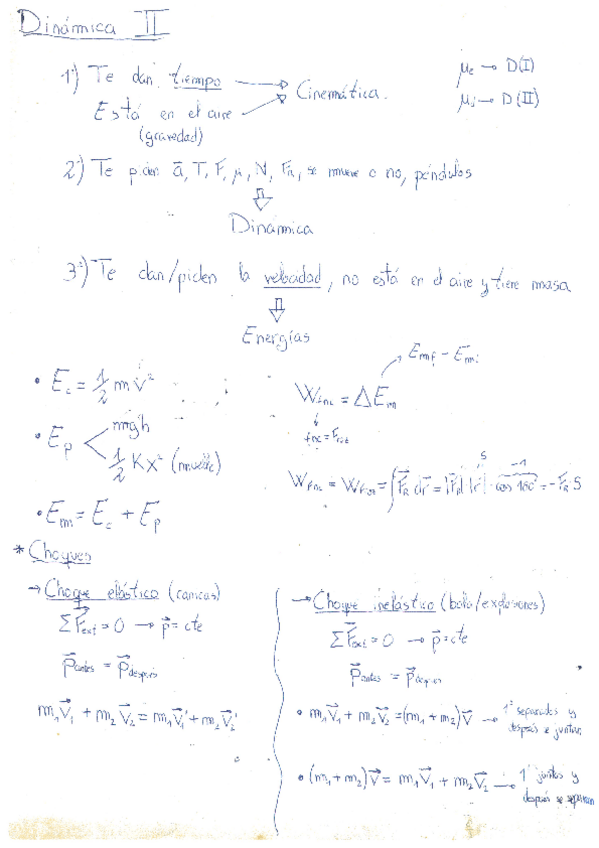 Dinámica II
1º) Te dan tiempo → Cinemática.
Está en el aire
(gravedad)
μe → D(I)
μd → D(II)
2º) Te piden a⃗, T, F, μ, N, FR, se mueve o no, péndulos
⇓
Dinámica
3º) Te dan/piden la velocidad, no está en el aire y tiene masa
⇓
Energías
• Ec = 1/2 m v²
• Ep < mgh
1/2 Kx² (muelle)
• Em = Ec + Ep
Emf - Emi
Wfnc = ΔEm
fnc = Froz
Wfnc = WFroz = ∫ F⃗R dr⃗ = |F⃗R| |r⃗| · cos 180º = -FR · S
S
-1
* Choques
→ Choque elástico (canicas)
ΣF⃗ext = 0 → p⃗ = cte
p⃗antes = p⃗después
m₁V⃗₁ + m₂V⃗₂ = m₁V⃗₁' + m₂V⃗₂'
→ Choque inelástico (bala/explosiones)
ΣF⃗ext = 0 → p⃗ = cte
p⃗antes = p⃗después
• m₁V⃗₁ + m₂V⃗₂ = (m₁ + m₂)V⃗ → 1º separados y
después se juntan
• (m₁ + m₂)V⃗ = m₁V⃗₁ + m₂V⃗₂ → 1º juntos y
después se separan